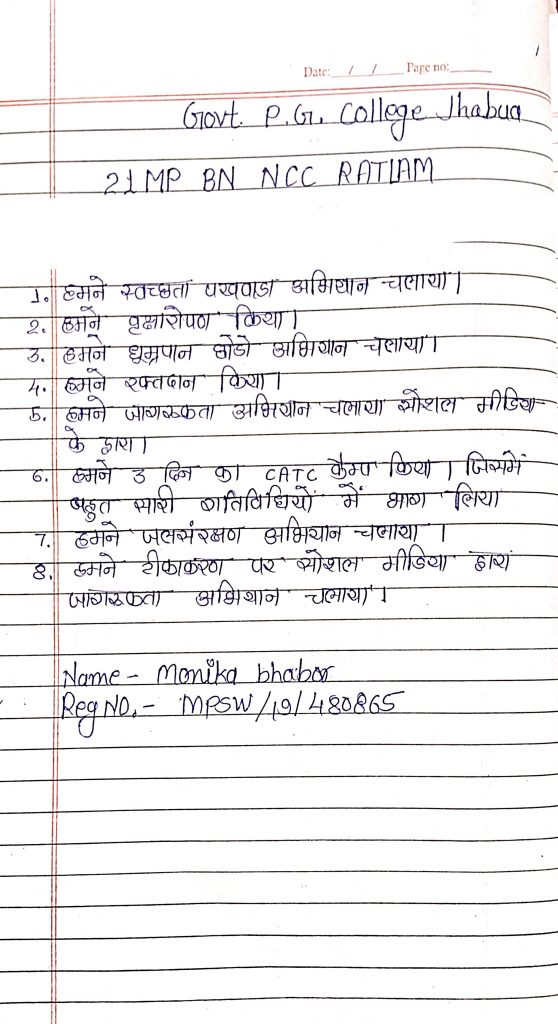 1
Date: / / Page no:
Govt. P.G. College Jhabua
21 MP BN NCC RATLAM
1. हमने स्वच्छता पखवाडा अभियान चलाया।
2. हमने वृक्षारोपण किया।
3. हमने धुम्रपान छोडो अभियान चलाया।
4. हमने रक्तदान किया।
5. हमने जागरूकता अभियान चलाया सोशल मीडिया
के द्वारा।
6. हमने 3 दिन का CATC कैम्प किया। जिसमें
बहुत सारी गतिविधियों में भाग लिया
7. हमने जलसंरक्षण अभियान चलाया ।
8. हमने टीकाकरण पर सोशल मीडिया द्वारा
जागरूकता अभियान चलाया।
Name - Monika bhabor
Reg NO. - MPSW/19/480865